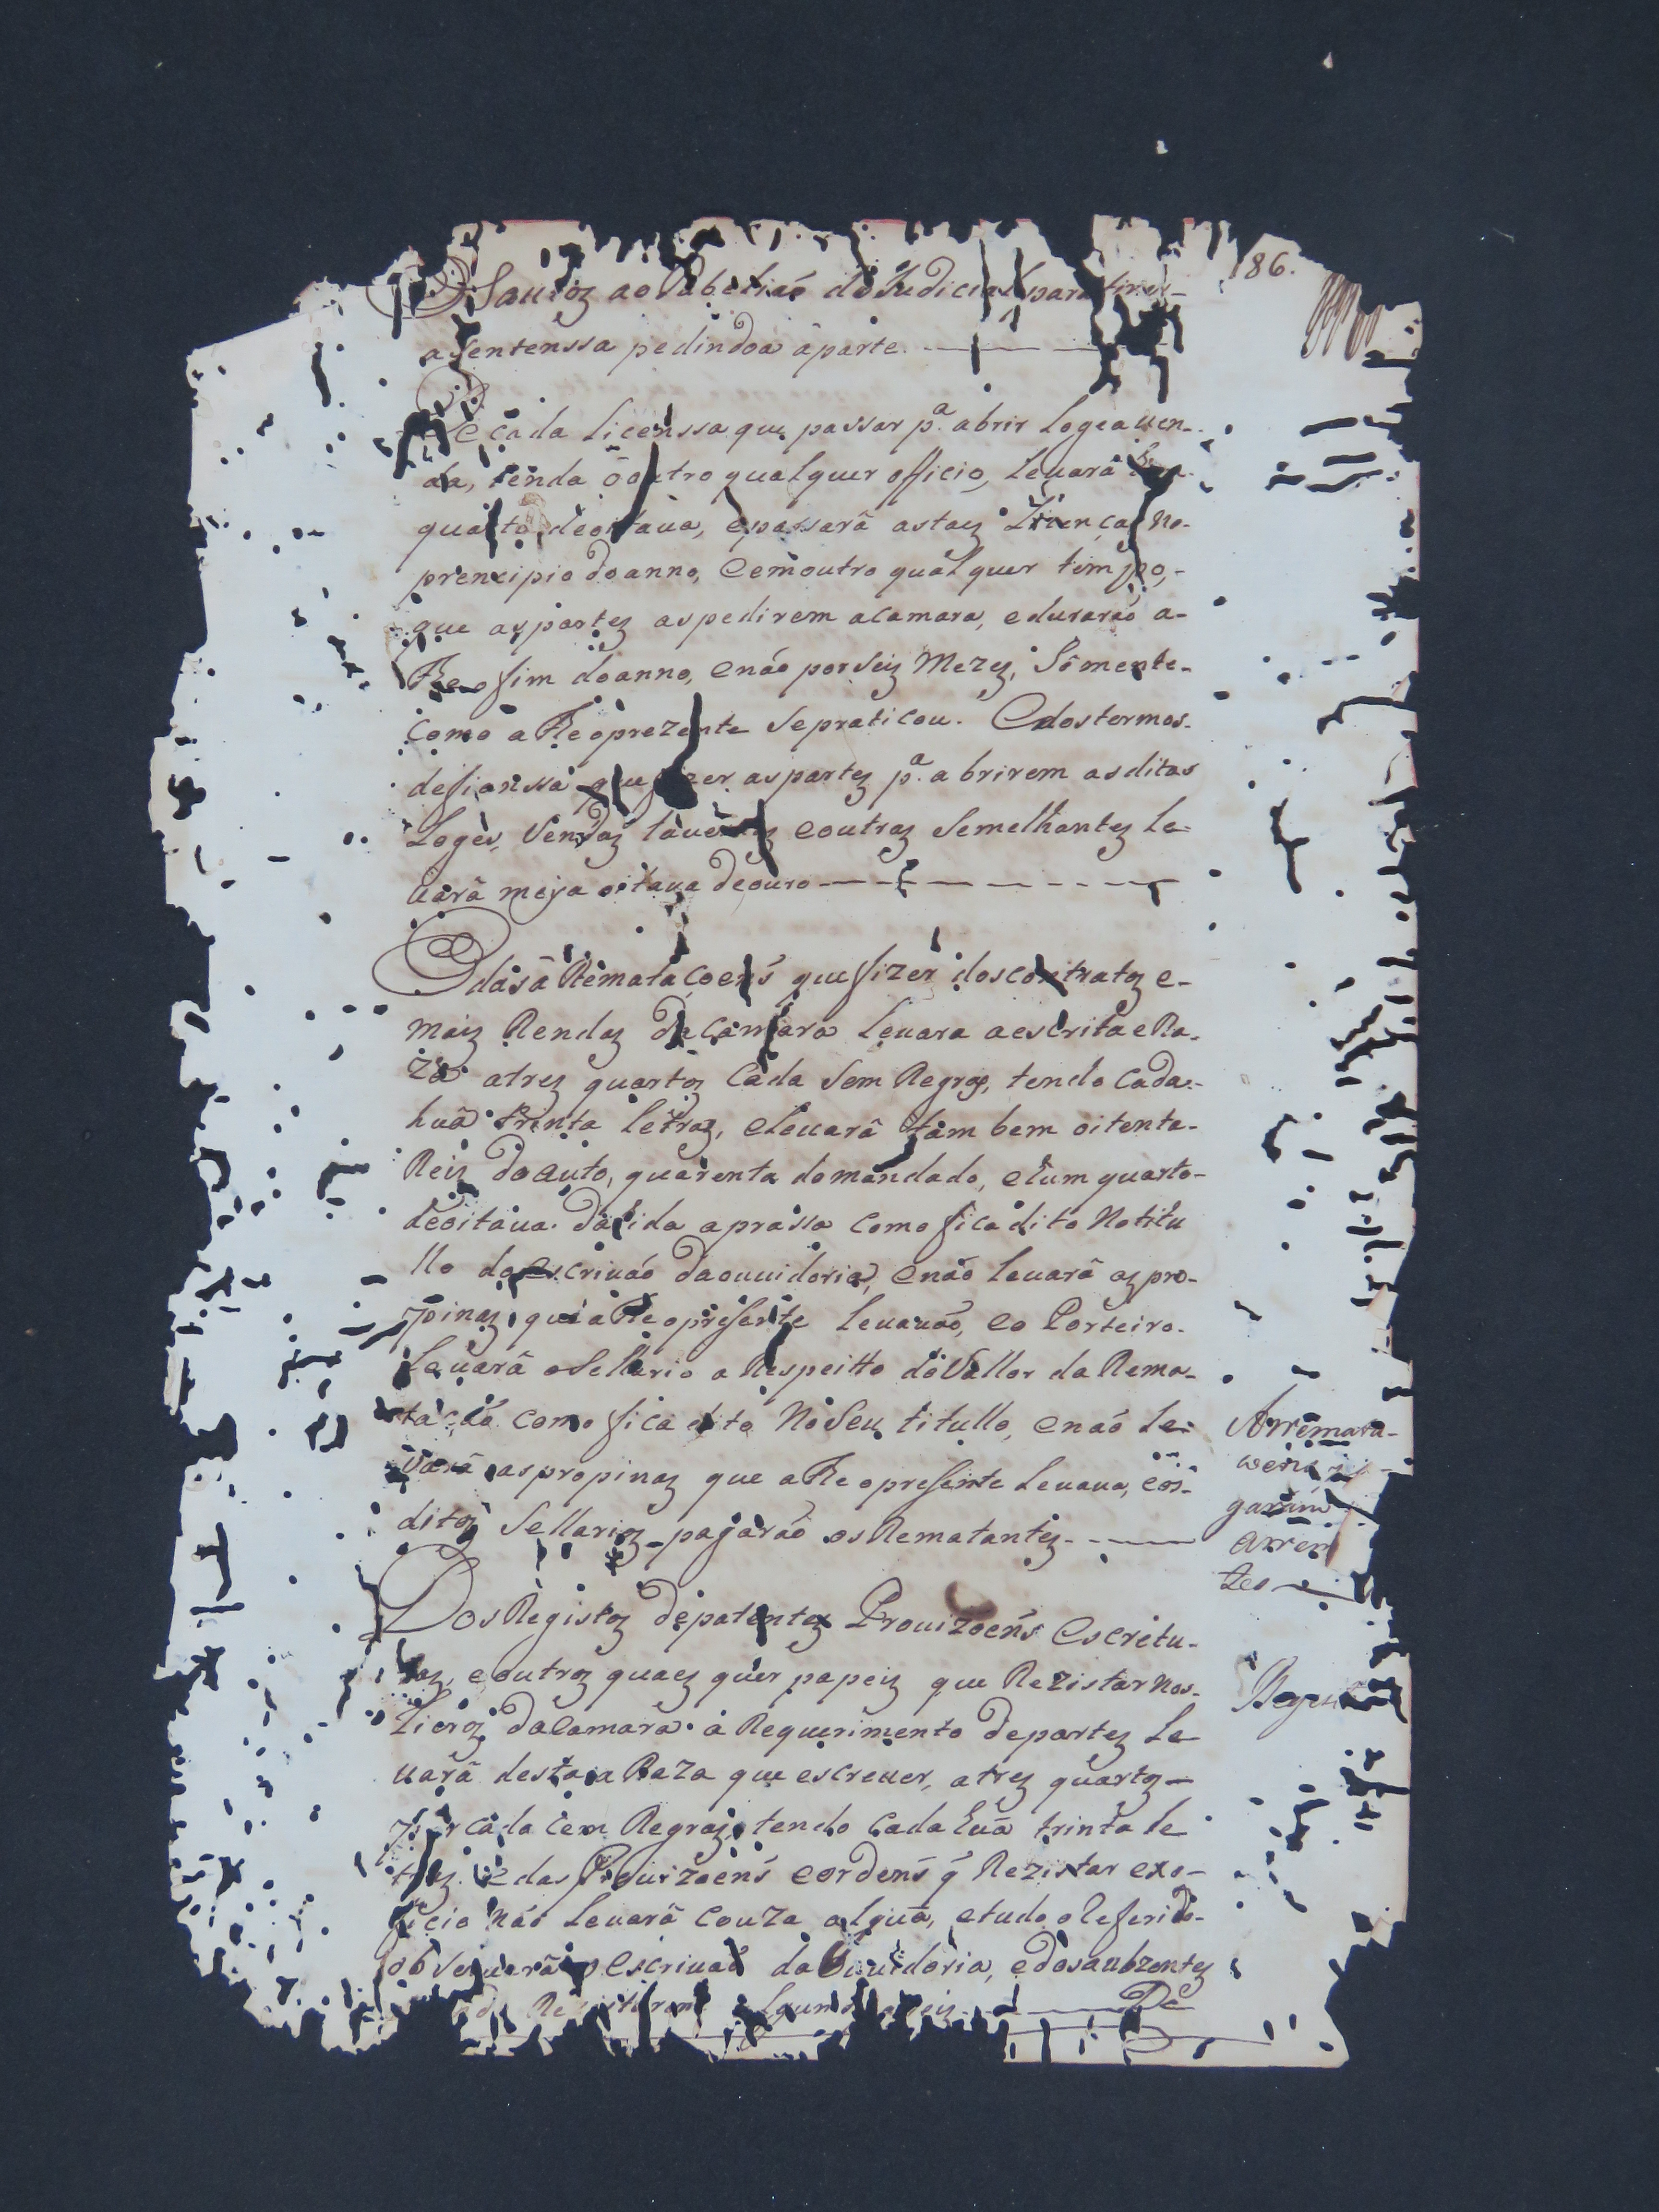 86.
Os autoz ao Tabeliaó do Judicial para tirar
a Sentenssa pedindoa áparte.
De cada Licenssa que passar p.ª abrir Logea uen-
da, tenda ó outro qualquer officio, Leuará hum
quarto deoitaua, epassará astaez Licenças no-
prencipio doanno, Eemoutro qualquer tempo,-
que aspartez aspedirem acamara, edurarão a-
The o fim doanno, enáo por Seiz Mezez, Sómente-
como a Theoprezente Sepraticou. Edostermos-
defianssa que fizer aspartez p.ª abrirem asditas
Loges, Vendaz tauernaz eoutraz Semelhantez Le-
uará meya oitaua deouro
E das á Rematacoens que fizer doscontratoz e-
maiz Rendaz dacamara Leuara aescrita eRa-
za atrez quartoz Cada Sem Regraz, tendo Cada-
huá trinta Letraz, eLeuará tam bem oitenta-
Reiz doauto, quarenta domandado, ehum quarto-
deoitaua. dahida aprassa como fica dito Notitu
llo do escriuaó daouuidoria, enáo Leuará azpro-
pinaz, que a Theopresente Leuauaó, eo Porteiro-
Leuará oSellario a Respeitto doVallor da Rema-
taçáo como fica dito NoSeu titullo, enaó Le-
uará aspropinaz que a Theopresente Leuaua, eos-
ditoz Sellarioz pagaráo os Rematantez.
Arremata-
Dos Registoz depatentez Prouizoens Escritu-
raz, eoutroz quaez quer papeiz que Rezistar Nos-
Liuroz dacamara. á Requerimento departez Le-
uará desta a Raza que escreuer, atrez quartoz-
por cada cem Regraz, tendo Cada huá trinta le
traz. E das Prouizoens eordens q̃ Rezistar exo-
ficio Náo Leuará Couza alguá, etudo o Referido-
obseruará o Escriuaó daOuuidoria, edosaubzentez
De